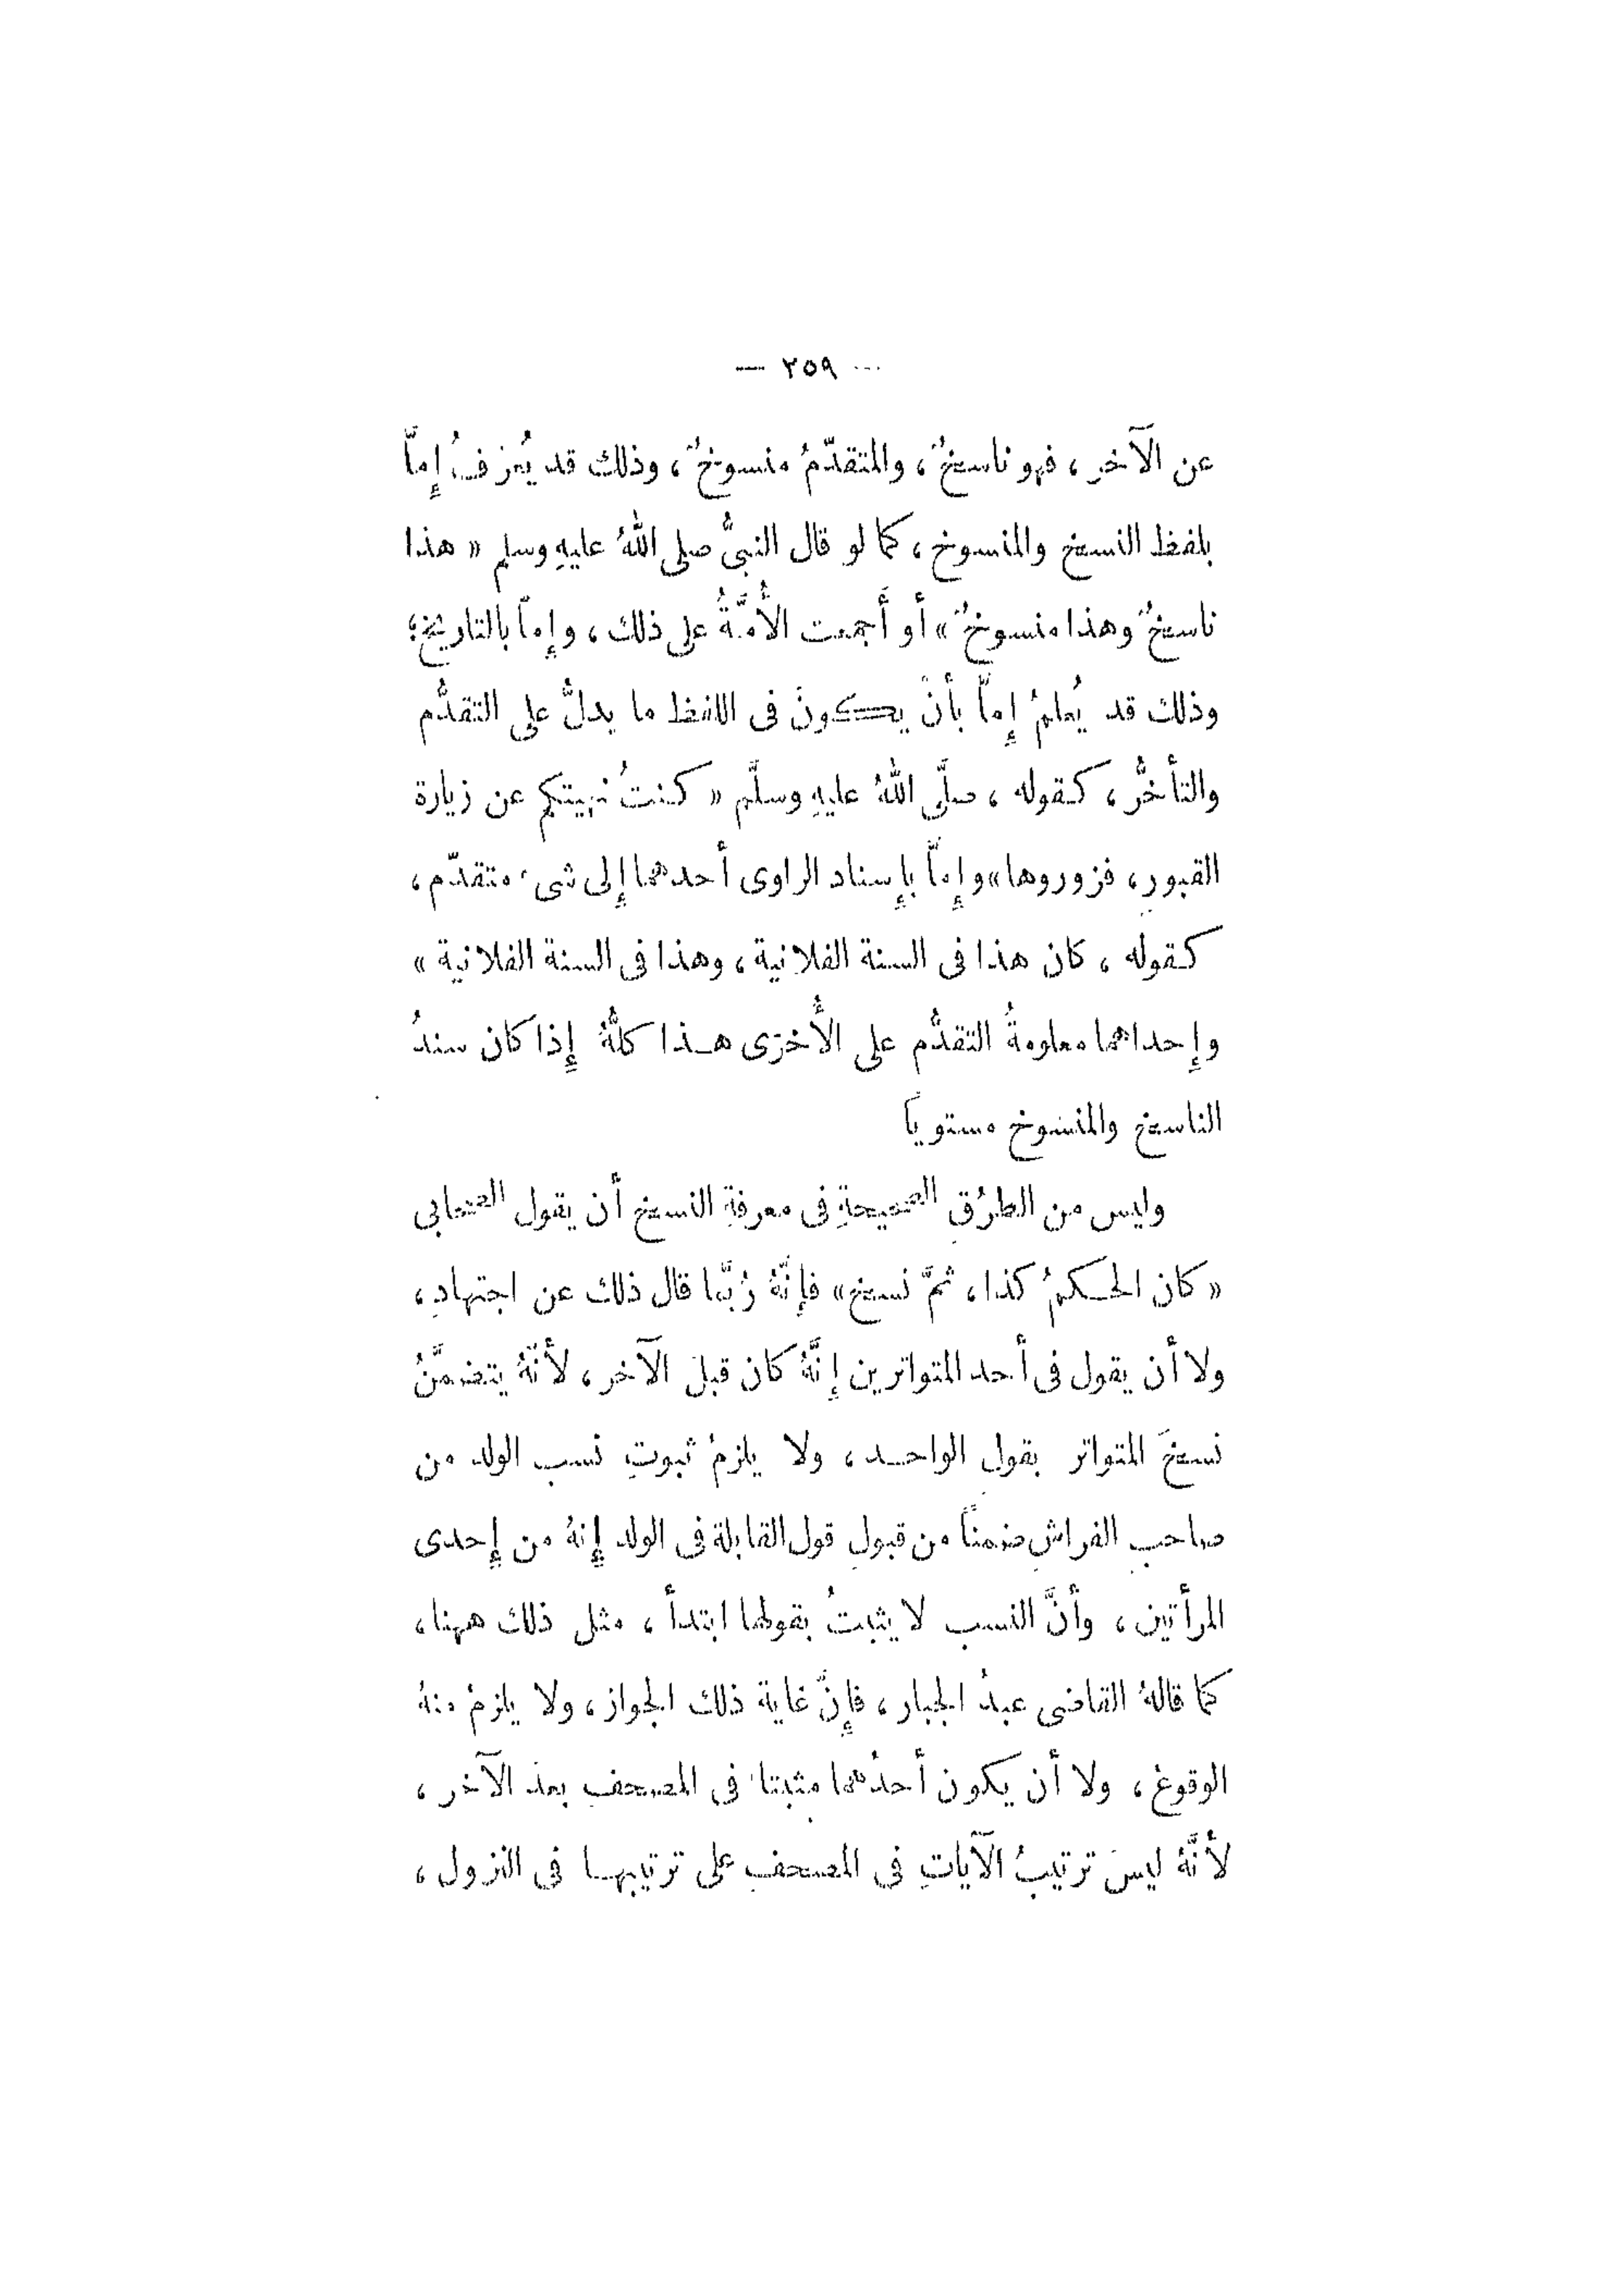 — ٢٥٩ —
عن الآخر ، فهو ناسخٌ ، والمتقدّمُ منسوخٌ ، وذلك قد يُعرَفُ إِمَّا
بلفظ النسخ والمنسوخ ، كما لو قال النبيُّ صلى اللهُ عليهِ وسلم « هذا
ناسخٌ وهذا منسوخٌ » أو أَجمعت الأُمَّةُ على ذلك ، وإِمّا بالتاريخ ؛
وذلك قد يُعلمُ إِمَّا بأنْ يكونَ فى اللفظ ما يدلُّ على التقدُّم
والتأخُّر ، كقوله ، صلَّى اللهُ عليهِ وسلَّم « كنتُ نهيتكم عن زيارة
القبورِ ، فزوروها » وإِمّا بإِسناد الراوى أحدهما إِلى شىء متقدّم ،
كقوله ، كان هذا فى السنة الفلانية ، وهذا فى السنة الفلانية »
وإِحداهما معلومةُ التقدُّم على الأُخرَى هذا كلُّهُ إِذا كان سندُ
الناسخ والمنسوخ مستوياً
وليس من الطرُقِ الصحيحةِ فى معرفةِ النسخ أن يقول الصحابى
« كان الحكمُ كذا ، ثمَّ نسخ » فإِنَّهُ رُبَّما قال ذلك عن اجتهادٍ ،
ولا أن يقول فى أحد المتواترين إِنَّهُ كان قبلَ الآخر ، لأنَّهُ يتضمَّنُ
نسخَ المتواتر بقول الواحد ، ولا يلزمُ ثبوتِ نسب الولد من
صاحب الفراشِ ضمناً من قبولِ قول القابلة فى الولد إِنهُ من إِحدى
المرأتين ، وأنَّ النسب لا يثبتُ بقولها ابتدأ ، مثل ذلك ههنا ،
كما قالهُ القاضى عبدُ الجبار ، فإِنَّ غاية ذلك الجواز ، ولا يلزمُ منهُ
الوقوعُ ، ولا أن يكون أحدُهما مثبتا فى المصحفِ بعدَ الآخر ،
لأنَّهُ ليسَ ترتيبُ الآياتِ فى المصحفِ على ترتيبها فى النزول ،